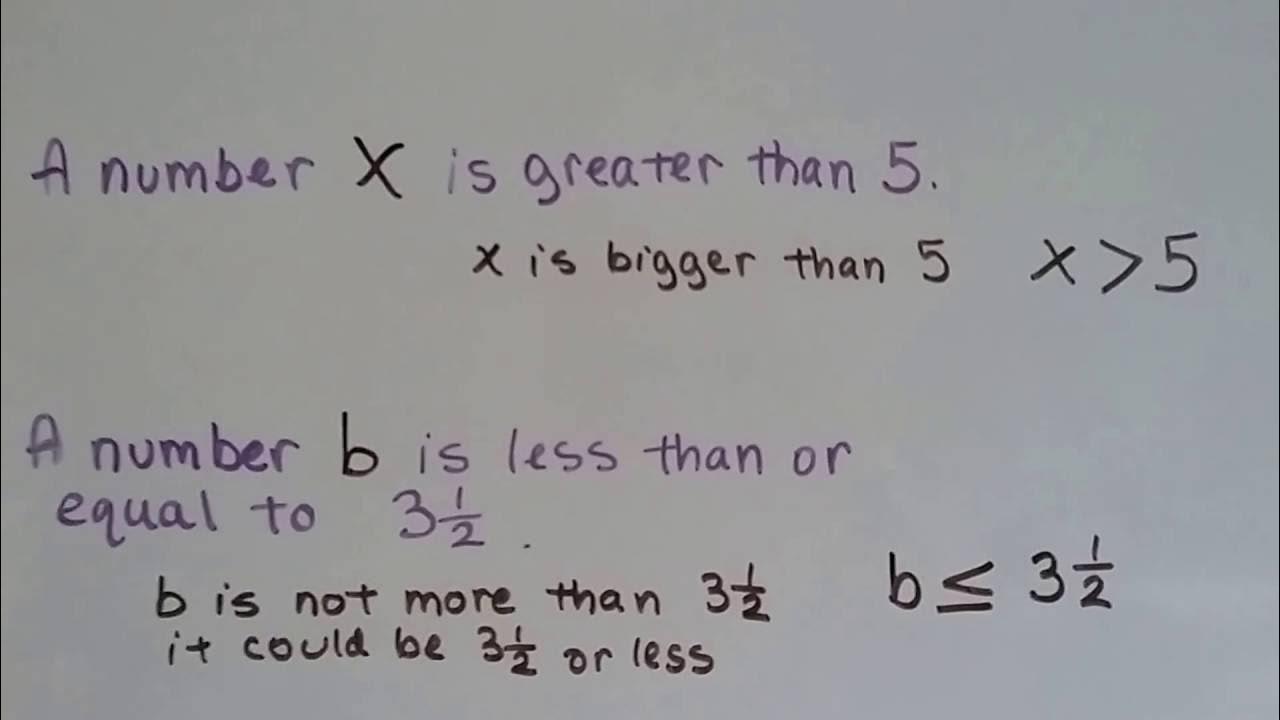 A number X is greater than 5.
x is bigger than 5 x > 5
A number b is less than or
equal to 3 1/2.
b is not more than 3 1/2 b ≤ 3 1/2
it could be 3 1/2 or less